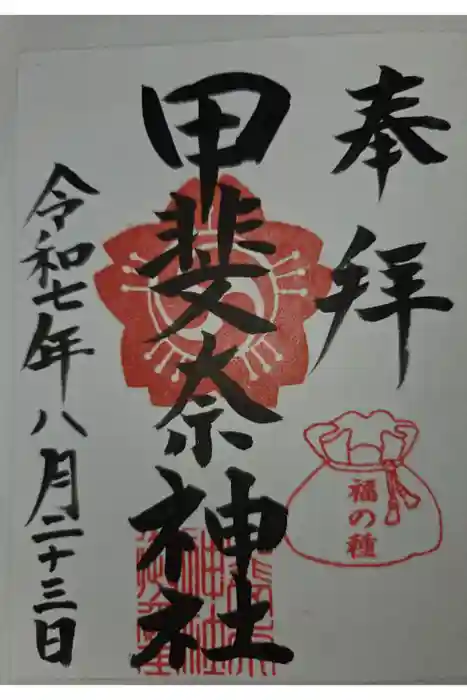 奉拝
福の種
甲斐奈神社
令和七年八月二十三日